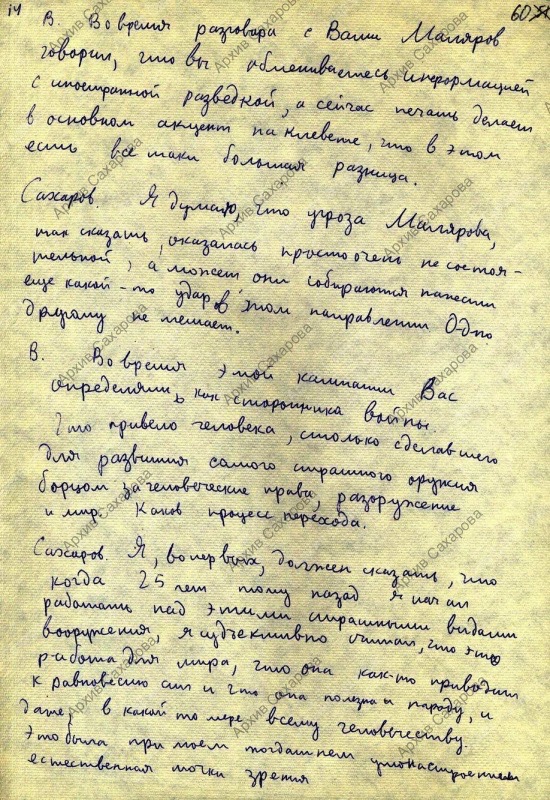 14
60
В. Во время разговора с Вами Маляров
говорил, что вы обмениваетесь информацией
с иностранной разведкой, а сейчас печать делает
в основном акцент на клевете, что в этом
есть все таки большая разница.
Сахаров Я думаю, что угроза Малярова,
так сказать, оказалась просто очень не состоя-
тельной, а может они собираются нанести
еще какой-то удар в этом направлении Одно
другому не мешает.
В. Во время этой кампании Вас
определяли, как сторонника войны.
Что привело человека, столько сделавшего
для развития самого страшного оружия
борцом за человеческие права, разоружение
и мир. Каков процесс перехода.
Сахаров. Я, во первых, должен сказать, что
когда 25 лет тому назад я начал
работать над этими страшными видами
вооружения, я субъективно считал, что это
работа для мира, что она как-то приводит
к равновесию сил и что она полезна народу, и
даже, в какой то мере всему человечеству.
Это была при моем тогдашнем умонастроении
естественная точка зрения
Архив Сахарова